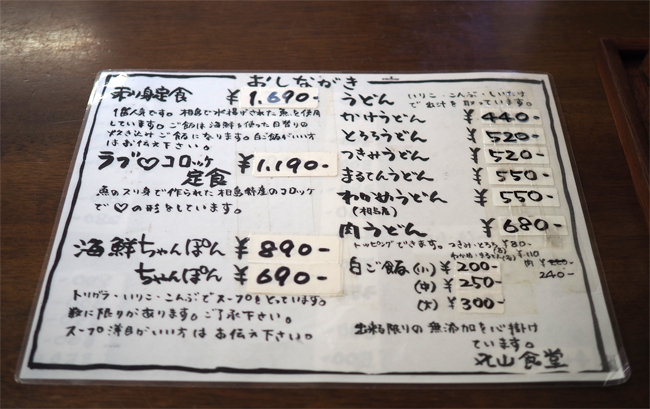 おしながき
刺身定食 ¥1.690-
1番人気です。相島で水揚げされた魚を使用
しています。ご飯は海鮮を使った日替りの
炊き込みご飯になります。白ご飯がいい方
はお伝え下さい。
ラブ♡コロッケ
定食 ¥1.190-
魚のスリ身で作られた相島特産のコロッケ
で♡の形をしています。
海鮮ちゃんぽん ¥890-
ちゃんぽん ¥690-
トリガラ・いりこ・こんぶでスープをとっています。
数に限りがあります。ご了承下さい。
スープ薄目がいい方はお伝え下さい。
うどん いりこ・こんぶ・しいたけ
で出汁を取っています。
かけうどん ¥440-
とろろうどん ¥520-
つきみうどん ¥520-
まるてんうどん ¥550-
わかめうどん ¥550-
(相島産)
肉うどん ¥680-
トッピングできます。つきみ・とろろ ¥80-
わかめ・まるてん ¥110
肉 240-
白ご飯 (小) ¥200-
(中) ¥250-
(大) ¥300-
出来る限りの無添加を心掛け
ています。
丸山食堂